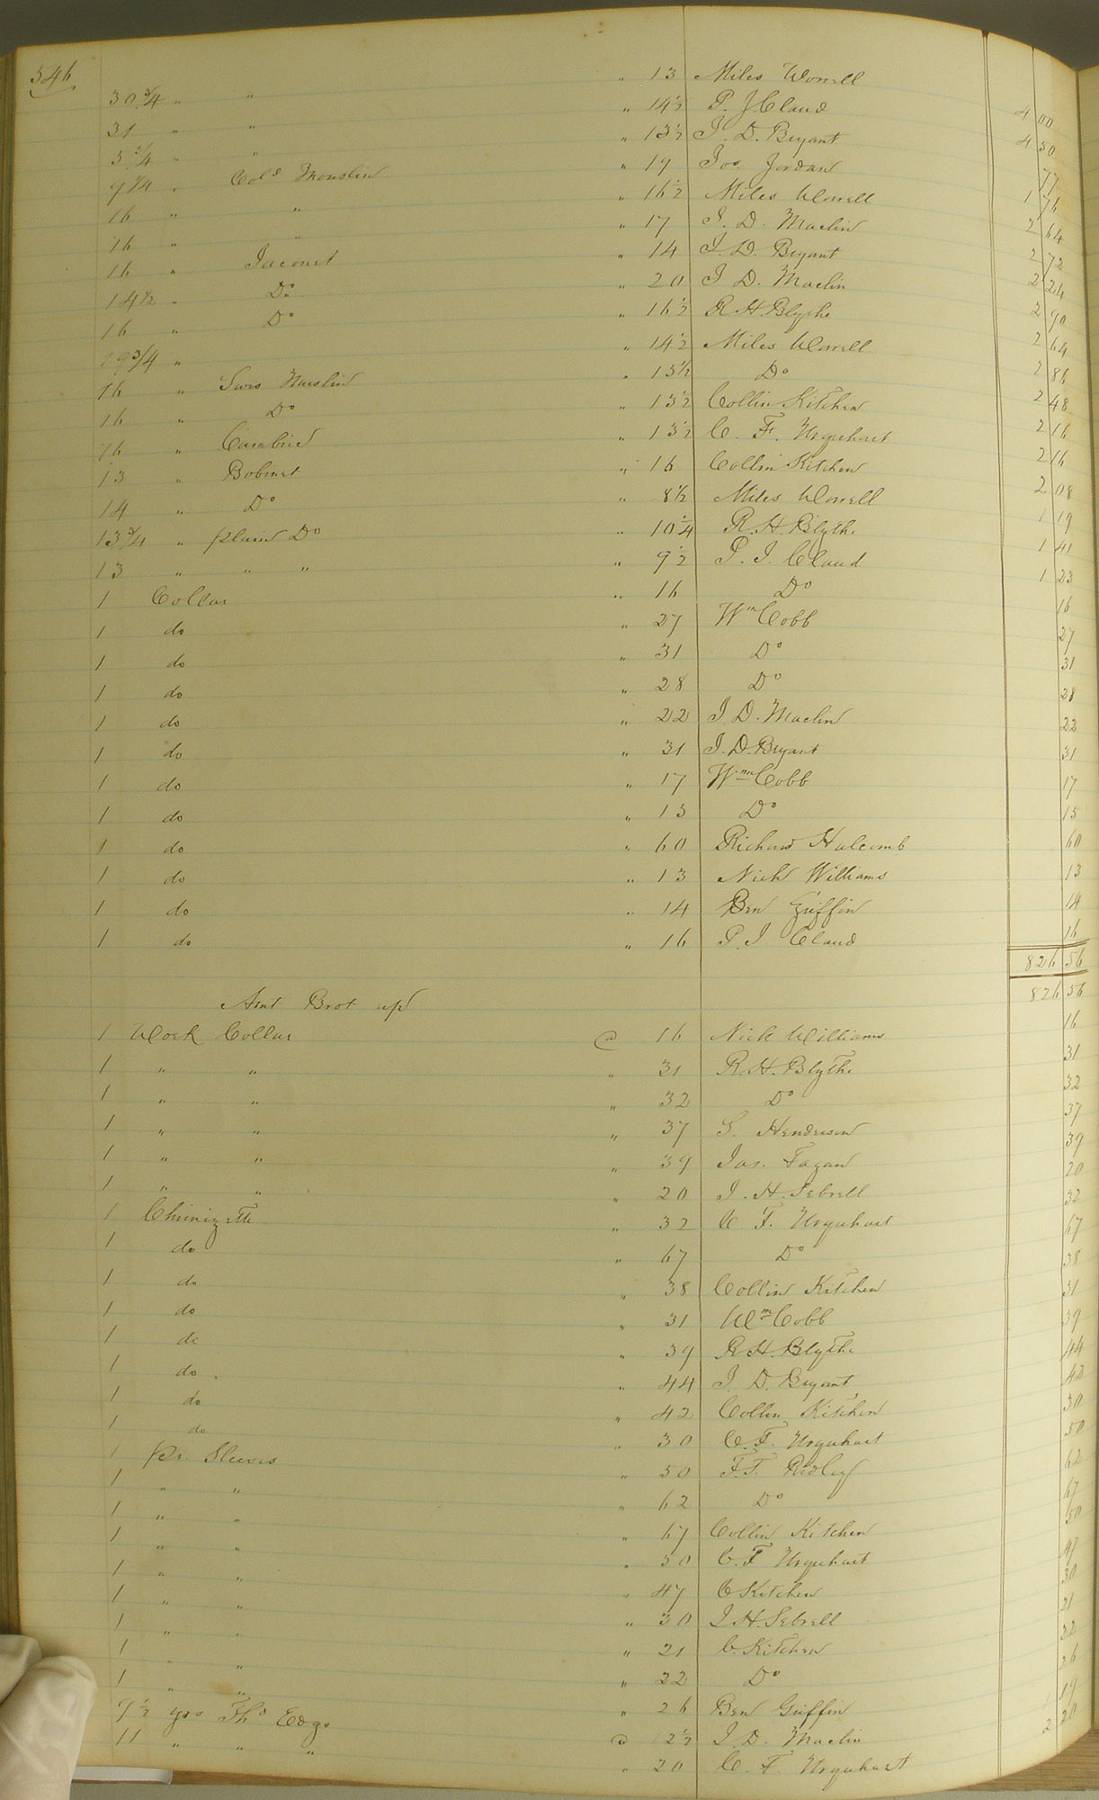 546
30 3/4 " " " 13 Miles Worrell 4 00
31 " " " 14½ P. J Claud 4 50
5 3/4 " " " 13½ J. D. Bryant 77
9 1/4 " Cold Mouslin " 19 Jos Jordan 1 76
16 " " " 16½ Miles Worrell 2 64
16 " " " 17 J. D. Maclin 2 72
16 " Jaconet " 14 J. D. Bryant 2 24
14½ " Do " 20 J D. Maclin 2 90
16 " Do " 16½ R H Blythe 2 64
19 3/4 " " 14½ Miles Worrell 2 86
16 " Swis Muslin " 15½ Do 2 48
16 " Do " 13½ Collin Kitchen 2 16
16 " Cambric " 13½ C. F. Urquhart 2 16
13 " Bobinet " 16 Collin Kitchen 2 08
14 " Do " 8½ Miles Worrell 1 19
13 3/4 " plain Do " 10¼ R. H. Blythe 1 41
13 " " " " 9½ P. J. Claud 1 23
1 Collar " 16 Do 16
1 do " 27 Wm Cobb 27
1 do " 31 Do 31
1 do " 28 Do 28
1 do " 22 J D. Maclin 22
1 do " 31 J. D. Bryant 31
1 do " 17 Wm Cobb 17
1 do " 15 Do 15
1 do " 60 Richard Halcomb 60
1 do " 13 Nick Williams 13
1 do " 14 Ben Griffin 14
1 do " 16 P. J Claud 16
826 56
Amt Brot up 826 56
1 Work Collar @ 16 Nick Williams 16
1 " " " 31 R. H. Blythe 31
1 " " " 32 Do 32
1 " " " 37 S. Henderson 37
1 " " " 39 Jas. Fagan 39
1 " " " 20 J. H. Sebrell 20
1 Chimizette " 32 C F. Urquhart 32
1 do " 67 Do 67
1 do " 38 Collin Kitchen 38
1 do " 31 Wm Cobb 31
1 do " 39 R H. Blythe 39
1 do " 44 J. D. Bryant 44
1 do " 42 Collin Kitchen 42
1 do " 30 C. F. Urquhart 30
1 pr. Sleeves " 50 F. T. Ridley 50
1 " " " 62 Do 62
1 " " " 67 Collin Kitchen 67
1 " " " 50 C. F Urquhart 50
1 " " " 47 C Kitchen 47
1 " " " 30 J H. Sebrell 30
1 " " " 21 C. Kitchen 21
1 " " " 22 Do 22
1 " " " 26 Ben Griffin 26
9½ yds Thd Edge @ 12½ J. D. Maclin 1 19
11 " " " " 20 C. F. Urquhart 2 20